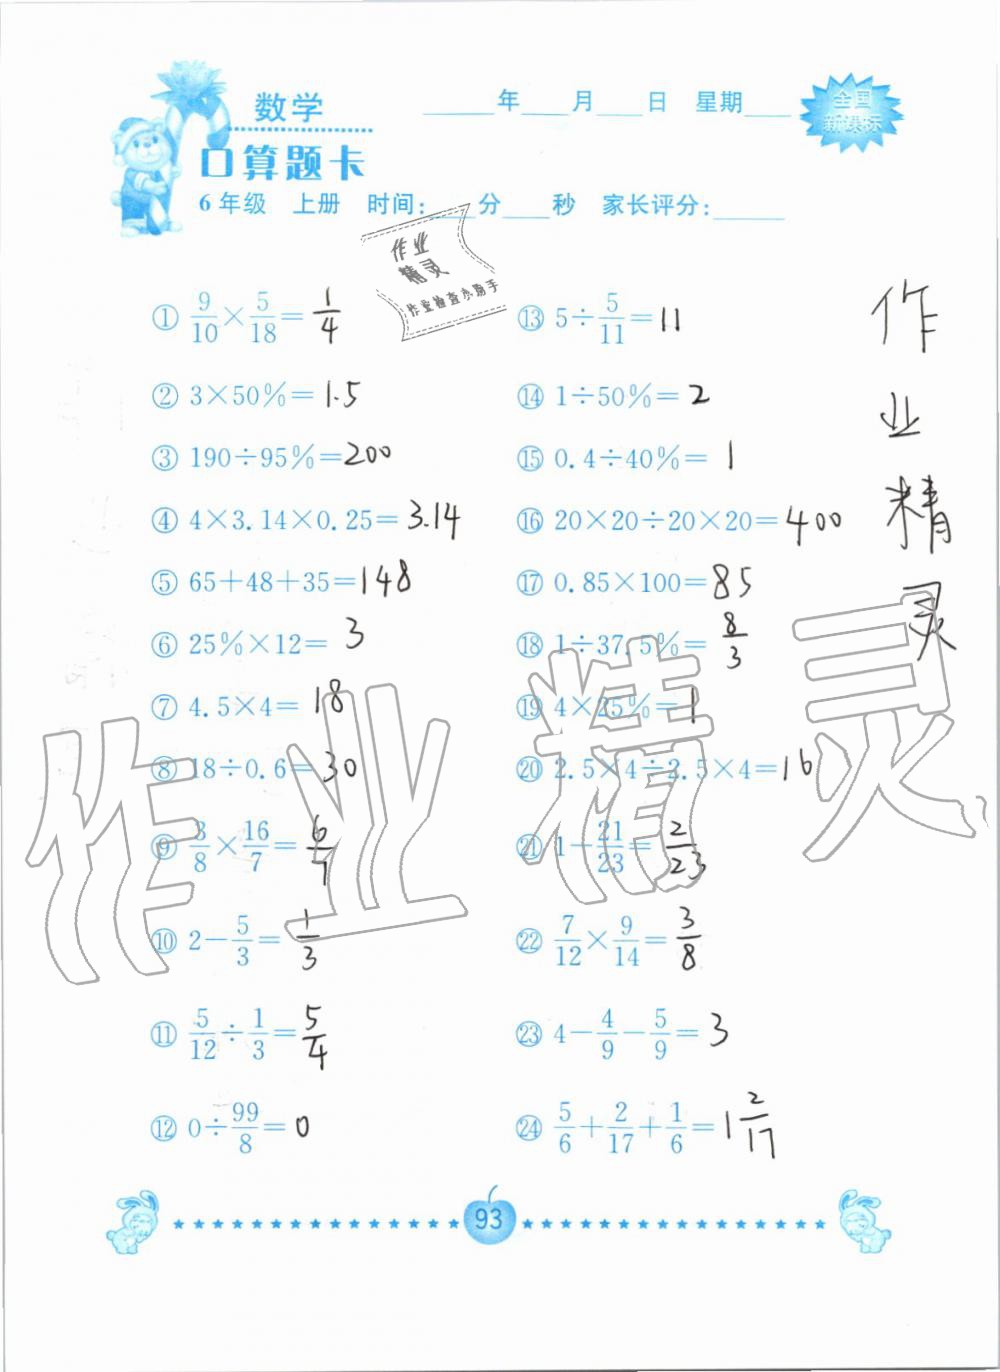 数学
____年____月____日 星期____
全国
新课标
口算题卡
6年级 上册 时间:____分____秒 家长评分:____
作业
精灵
作业检查小助手
① 9/10×5/18= 1/4
② 3×50%= 1.5
③ 190÷95%=200
④ 4×3.14×0.25= 3.14
⑤ 65+48+35=148
⑥ 25%×12= 3
⑦ 4.5×4= 18
⑧ 18÷0.6=30
⑨ 3/8×16/7= 6/7
⑩ 2-5/3= 1/3
⑪ 5/12÷1/3= 5/4
⑫ 0÷99/8= 0
⑬ 5÷5/11= 11
⑭ 1÷50%= 2
⑮ 0.4÷40%= 1
⑯ 20×20÷20×20=400
⑰ 0.85×100=85
⑱ 1÷37.5%= 8/3
⑲ 4×25%= 1
⑳ 2.5×4÷2.5×4=16
㉑ 1-21/23= 2/23
㉒ 7/12×9/14= 3/8
㉓ 4-4/9-5/9= 3
㉔ 5/6+2/17+1/6=1 2/17
作
业
精
灵
作业精灵
93